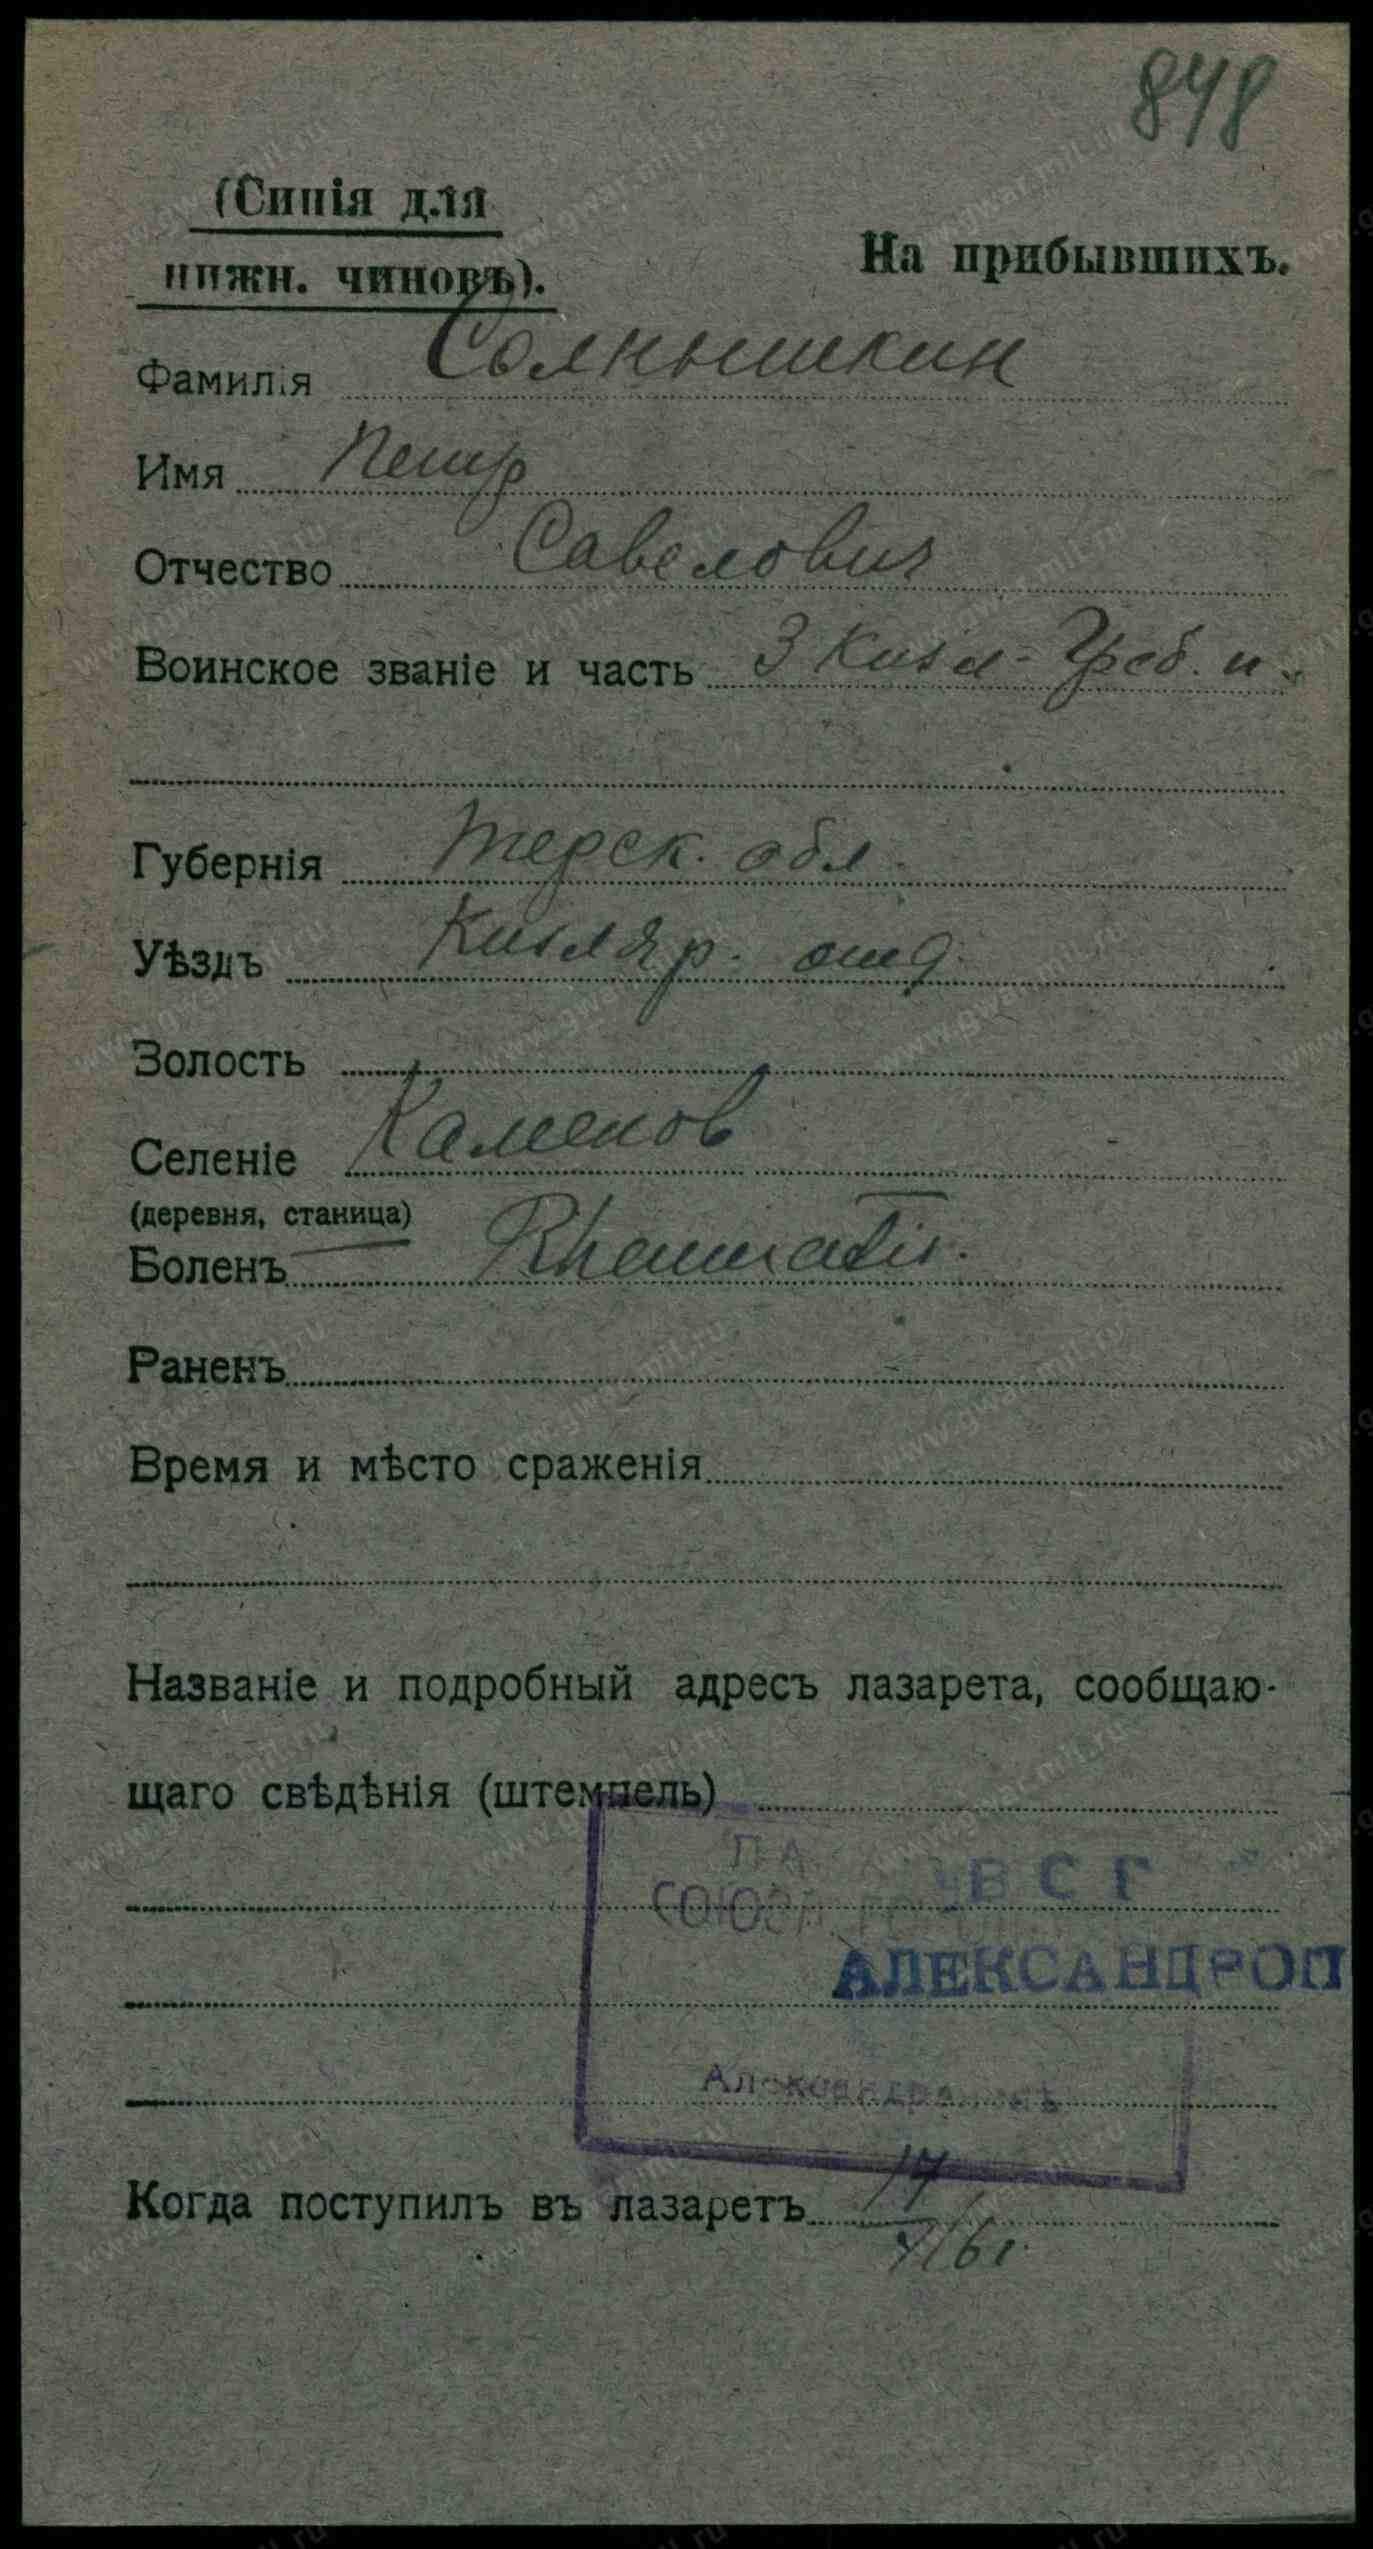 848
(Синія для
нижн. чиновъ).
На прибывшихъ.
Фамилія Солнышкин
Имя Петр
Отчество Савелович
Воинское званіе и часть 3 Кизл-Греб. п.
Губернія Терск. обл.
Уѣздъ Кизляр. отд.
Золость
Селеніе Каменов
(деревня, станица)
Боленъ Rheumatis.
Раненъ
Время и мѣсто сраженія
Названіе и подробный адресъ лазарета, сообщаю-
щаго свѣдѣнія (штемпель)
ВСГ
СОЮЗА
АЛЕКСАНДРОП
Когда поступилъ въ лазаретъ 17